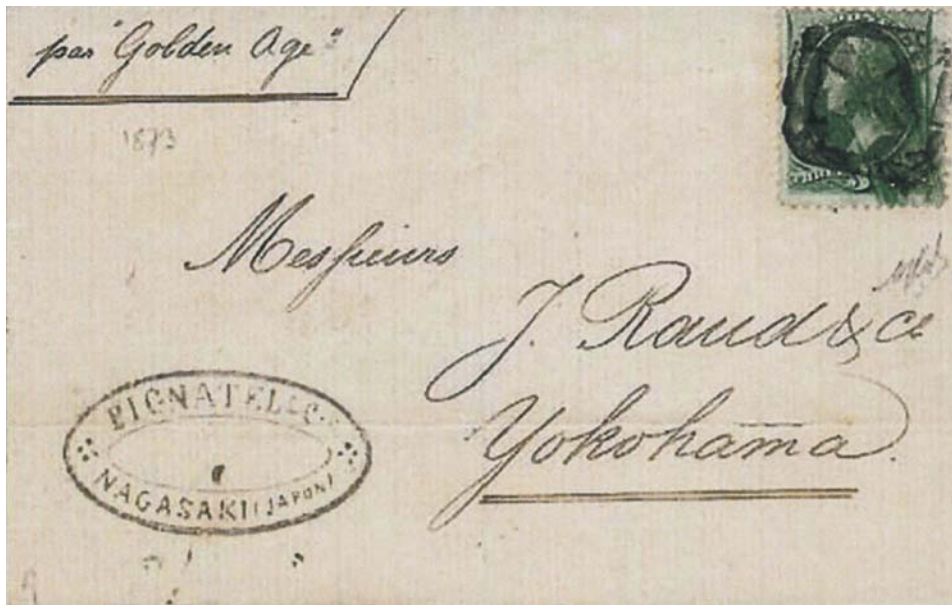 par "Golden Age"
1873
Messieurs
J. Raud & Co
Yokohama.
PIGNATEL & Co
NAGASAKI (JAPON)